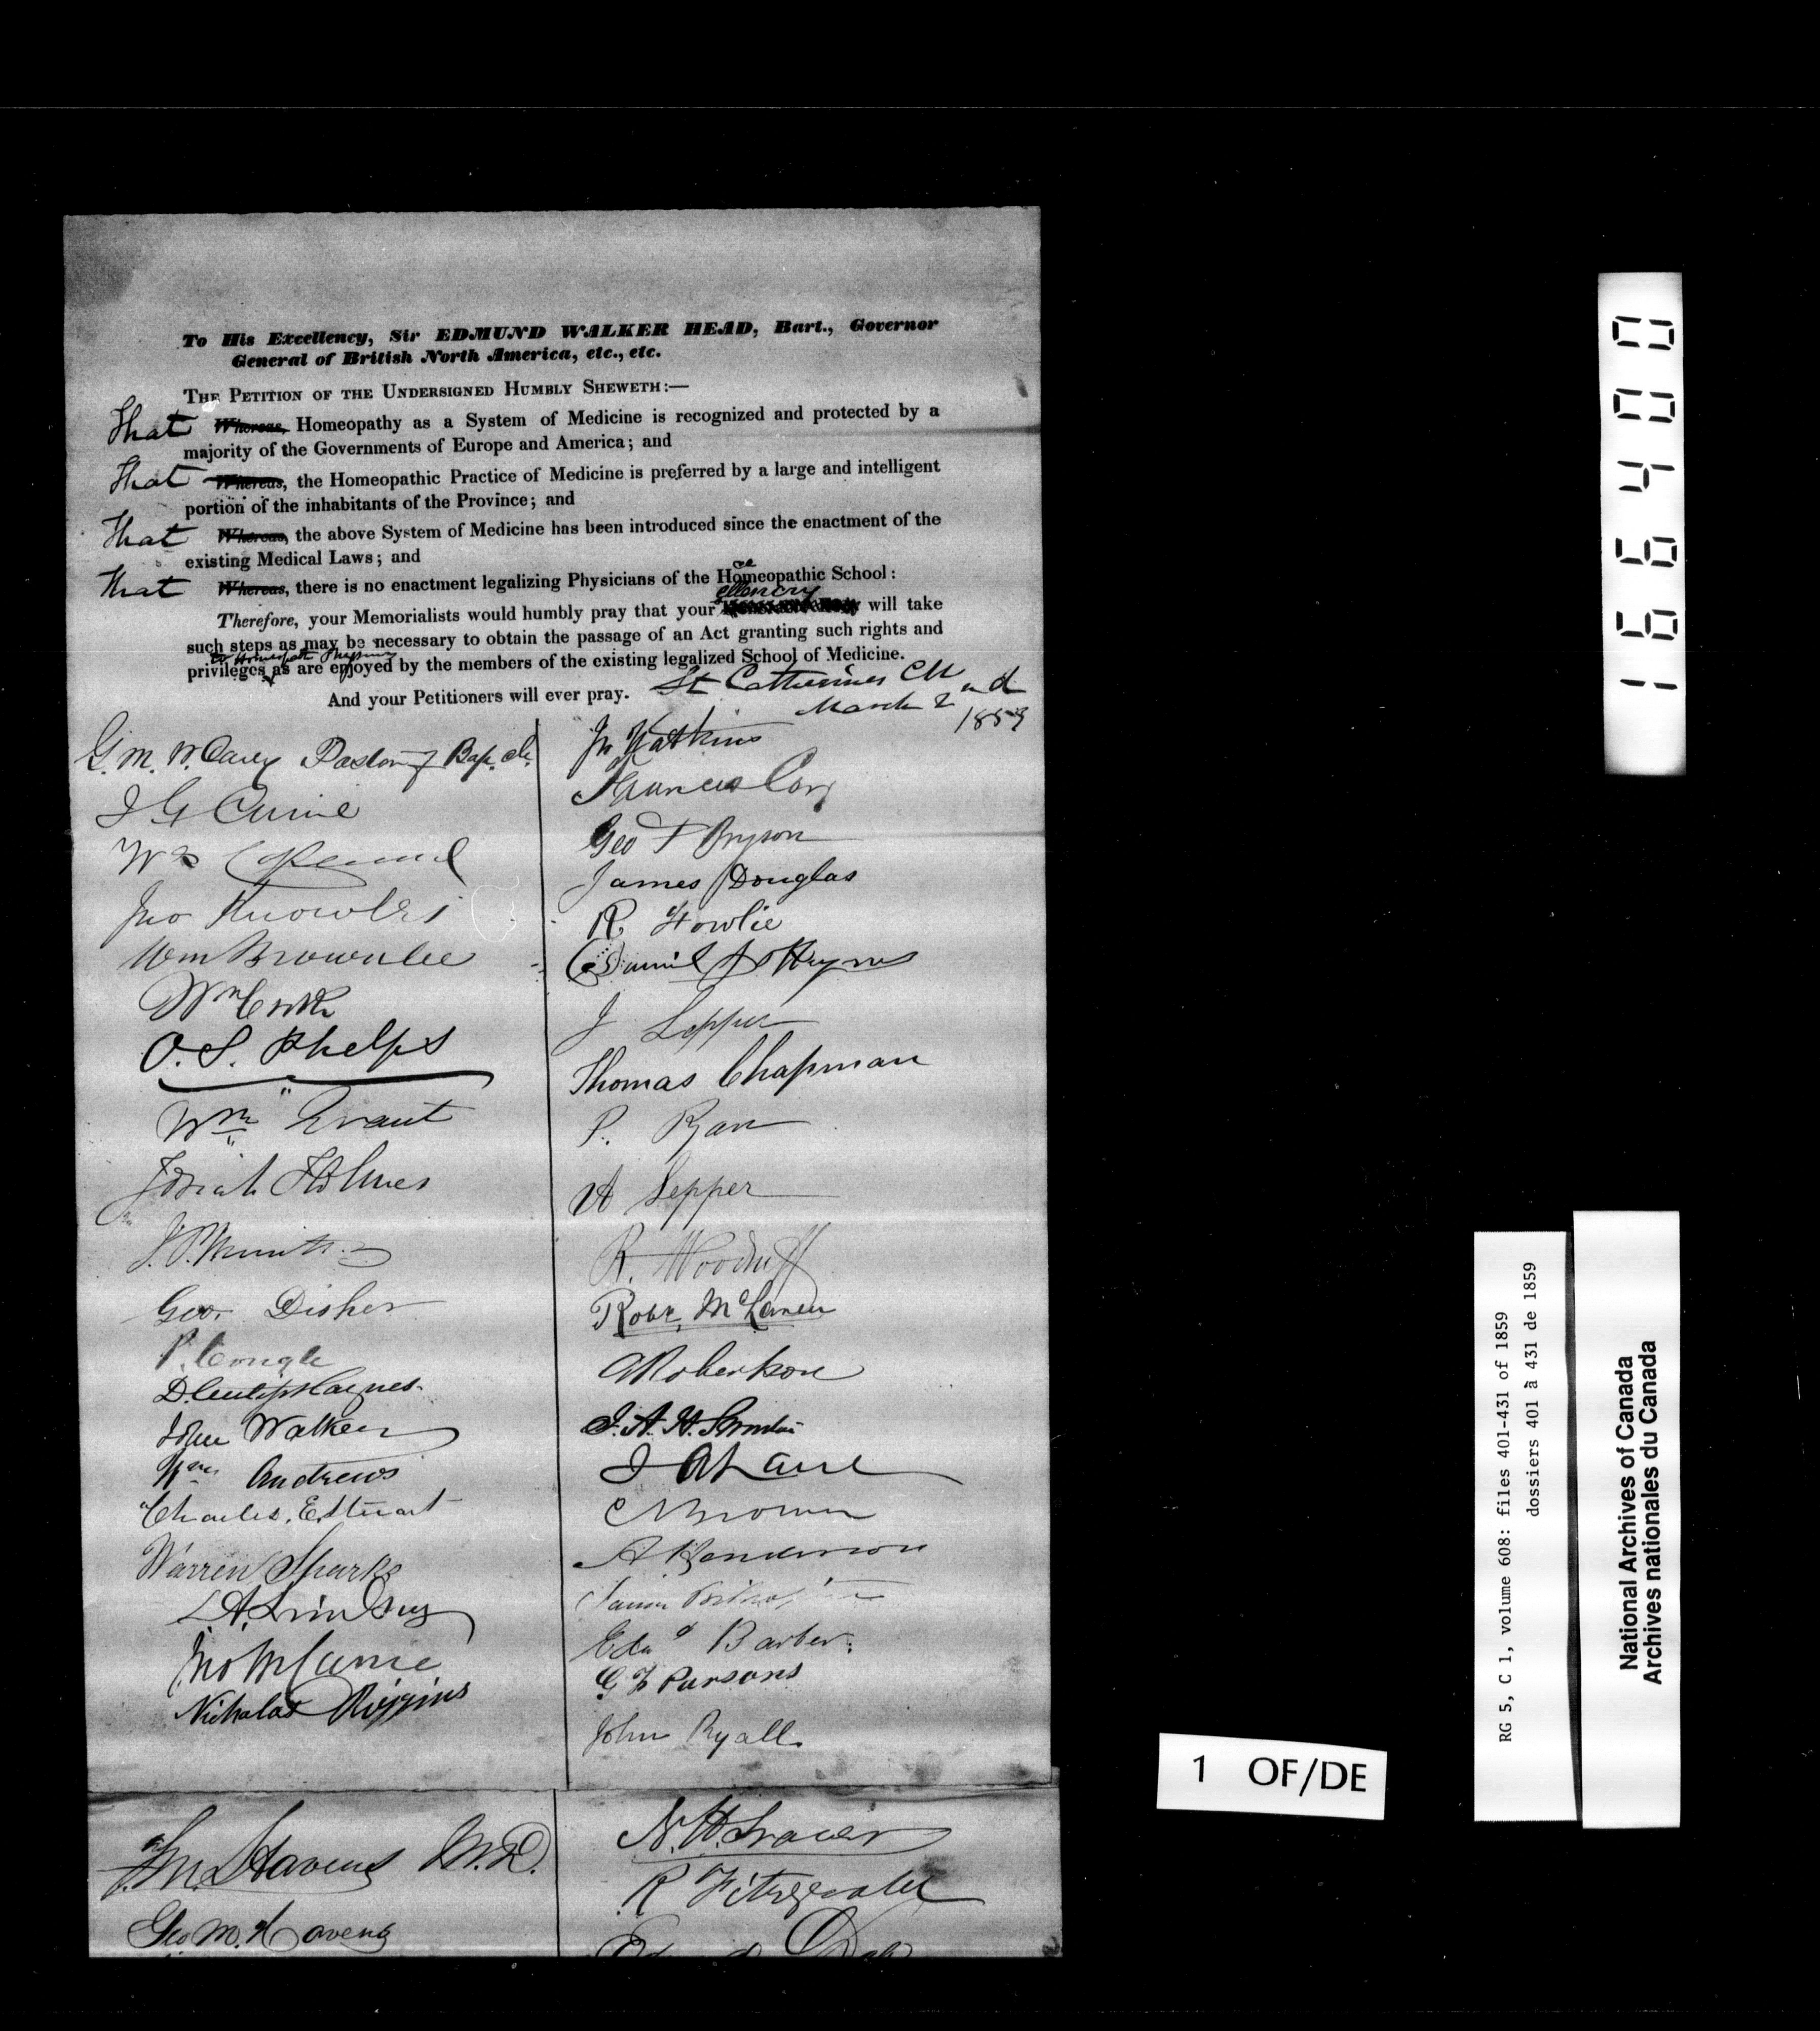 To His Excellency, Sir EDMUND WALKER HEAD, Bart., Governor
General of British North America, etc., etc.
THE PETITION OF THE UNDERSIGNED HUMBLY SHEWETH:—
That Whereas, Homeopathy as a System of Medicine is recognized and protected by a
majority of the Governments of Europe and America; and
That Whereas, the Homeopathic Practice of Medicine is preferred by a large and intelligent
portion of the inhabitants of the Province; and
That Whereas, the above System of Medicine has been introduced since the enactment of the
existing Medical Laws; and
That Whereas, there is no enactment legalizing Physicians of the Homeopathic School:
Therefore, your Memorialists would humbly pray that your will take
such steps as may be necessary to obtain the passage of an Act granting such rights and
privileges as are enjoyed by the members of the existing legalized School of Medicine.
And your Petitioners will ever pray.
St Catherines
March 2nd
1859
G. M. W. Carey Pastor of Bap. Ch.
J G Currie
Wm
Jno
Wm Brownlee
Wm
O. S. Phelps
Wm Grant
Josiah Holmes
Geo. Disher
P. Congle
Haynes
John Walker
Wm Andrews
Charles. E. Stuart
Warren Sparks
Lindsey
Jno
Nicholas Riggins
M. Havens M.D.
Geo M. Havens
Jn Watkins
Geo F Bryson
James Douglas
R. Fowlie
Haynes
J Lepper
Thomas Chapman
P. Ryan
A Lepper
R. Woodruff
Robt. McLaren
A Robertson
J. A. H.
C Brown
A Henderson
Edwd Barber.
G F Parsons
John Ryall.
N. H.
R Fitzgerald
166400
1 OF/DE
RG 5, C 1, volume 608: files 401-431 of 1859
dossiers 401 à 431 de 1859
National Archives of Canada
Archives nationales du Canada